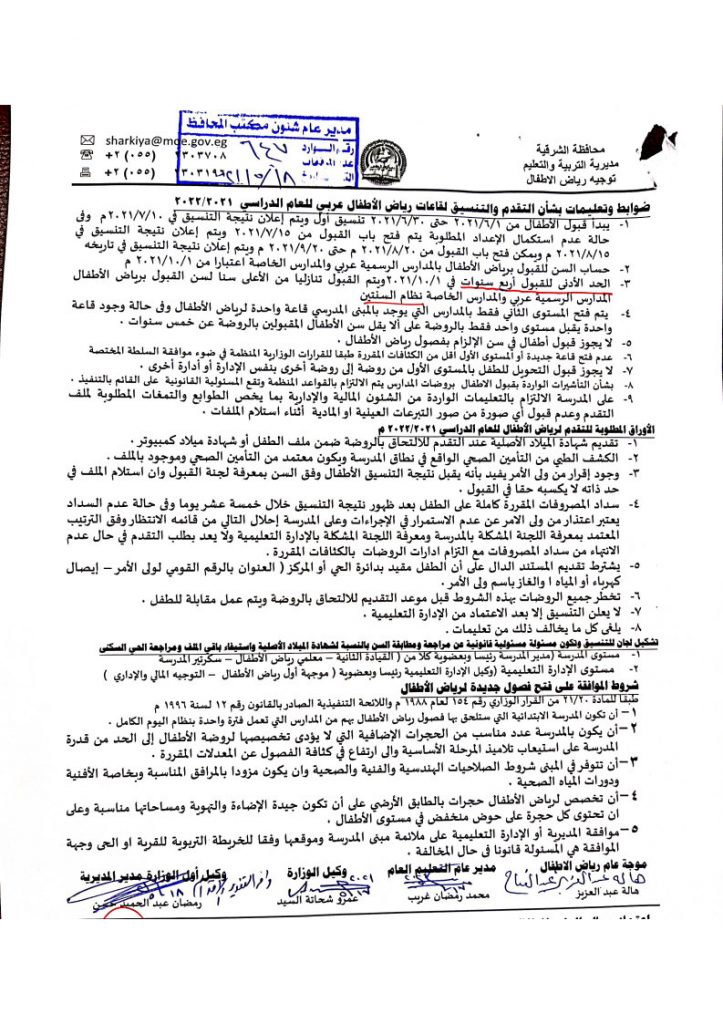 محافظة الشرقية
مديرية التربية والتعليم
توجيه رياض الاطفال
مدير عام شئون مكتب المحافظ
رقم الوارد ٦٤٧
عدد المرفقات
٢٠٢١/٥/١٨
sharkiya@moe.gov.eg
+٢ (٠٥٥) ٢٣٠٣٧٠٨
+٢ (٠٥٥)
ضوابط وتعليمات بشأن التقدم والتنسيق لقاعات رياض الأطفال عربي للعام الدراسي ٢٠٢٢/٢٠٢١
١- يبدأ قبول الأطفال من ٢٠٢١/٦/١ حتى ٢٠٢١/٦/٣٠ تنسيق أول ويتم إعلان نتيجة التنسيق في ٢٠٢١/٧/١٠م وفى
حالة عدم استكمال الإعداد المطلوبة يتم فتح باب القبول من ٢٠٢١/٧/١٥ ويتم إعلان نتيجة التنسيق في
٢٠٢١/٨/١٥ م ويمكن فتح باب القبول من ٢٠٢١/٨/٢٠ م حتى ٢٠٢١/٩/٢٠ م ويتم إعلان نتيجة التنسيق في تاريخه
٢- حساب السن للقبول برياض الأطفال بالمدارس الرسمية عربي والمدارس الخاصة اعتبارا من ٢٠٢١/١٠/١ م
٣- الحد الأدنى للقبول أربع سنوات في ٢٠٢١/١٠/١ ويتم القبول تنازليا من الأعلى سنا لسن القبول برياض الأطفال
المدارس الرسمية عربي والمدارس الخاصة نظام السنتين
٤- يتم فتح المستوى الثاني فقط بالمدارس التي يوجد بالمبنى المدرسي قاعة واحدة لرياض الأطفال وفى حالة وجود قاعة
واحدة يقبل مستوى واحد فقط بالروضة على ألا يقل سن الأطفال المقبولين بالروضة عن خمس سنوات .
٥- لا يجوز قبول أطفال في سن الإلزام بفصول رياض الأطفال .
٦- عدم فتح قاعة جديدة أو المستوى الأول اقل من الكثافات المقررة طبقا للقرارات الوزارية المنظمة في ضوء موافقة السلطة المختصة
٧- لا يجوز قبول التحويل للطفل بالمستوى الأول من روضة إلى روضة أخرى بنفس الإدارة أو أدارة أخرى .
٨- بشأن التأشيرات الواردة بقبول الاطفال بروضات المدارس يتم الالتزام بالقواعد المنظمة وتقع المسئولية القانونية على القائم بالتنفيذ .
٩- على المدرسة الالتزام بالتعليمات الواردة من الشئون المالية والإدارية بما يخص الطوابع والتمغات المطلوبة لملف
التقدم وعدم قبول أي صورة من صور التبرعات العينية او المادية أثناء استلام الملفات .
الأوراق المطلوبة للتقدم لرياض الأطفال للعام الدراسي ٢٠٢٢/٢٠٢١ م
١- تقديم شهادة الميلاد الأصلية عند التقدم للالتحاق بالروضة ضمن ملف الطفل أو شهادة ميلاد كمبيوتر .
٢- الكشف الطبي من التأمين الصحي الواقع في نطاق المدرسة ويكون معتمد من التأمين الصحي وموجود بالملف .
٣- وجود إقرار من ولى الأمر يفيد بأنه يقبل نتيجة التنسيق الأطفال وفق السن بمعرفة لجنة القبول وان استلام الملف في
حد ذاته لا يكسبه حقا في القبول .
٤- سداد المصروفات المقررة كاملة على الطفل بعد ظهور نتيجة التنسيق خلال خمسة عشر يوما وفى حالة عدم السداد
يعتبر اعتذار من ولى الامر عن عدم الاستمرار في الإجراءات وعلى المدرسة إحلال التالي من قائمه الانتظار وفق الترتيب
المعتمد بمعرفة اللجنة المشكلة بالمدرسة ومعرفة اللجنة المشكلة بالإدارة التعليمية ولا يعد بطلب التقدم في حال عدم
الانتهاء من سداد المصروفات مع التزام ادارات الروضات بالكثافات المقررة .
٥- يشترط تقديم المستند الدال على أن الطفل مقيد بدائرة الحي أو المركز ( العنوان بالرقم القومي لولى الأمر – إيصال
كهرباء أو المياه ا والغاز باسم ولى الأمر .
٦- تخطر جميع الروضات بهذه الشروط قبل موعد التقديم للالتحاق بالروضة ويتم عمل مقابلة للطفل .
٧- لا يعلن التنسيق إلا بعد الاعتماد من الإدارة التعليمية .
٨- يلغى كل ما يخالف ذلك من تعليمات .
تشكيل لجان للتنسيق وتكون مسئولة مسئولية قانونية عن مراجعة ومطابقة السن بالنسبة لشهادة الميلاد الأصلية واستيفاء باقي الملف ومراجعة الحي السكنى
١- مستوى المدرسة (مدير المدرسة رئيسا وبعضوية كلا من ( القيادة الثانية – معلمي رياض الأطفال – سكرتير المدرسة
٢- مستوى الإدارة التعليمية (وكيل الإدارة التعليمية رئيسا وبعضوية ( موجهة أول رياض الأطفال – التوجيه المالي والإداري )
شروط الموافقة على فتح فصول جديدة لرياض الأطفال
طبقا للمادة ٢١/٢٠ من القرار الوزاري رقم ١٥٤ لعام ١٩٨٨ م واللائحة التنفيذية الصادر بالقانون رقم ١٢ لسنة ١٩٩٦ م
١- أن تكون المدرسة الابتدائية التي ستلحق بها فصول رياض الأطفال بهم من المدارس التي تعمل فترة واحدة بنظام اليوم الكامل .
٢- أن يكون بالمدرسة عدد مناسب من الحجرات الإضافية التي لا يؤدى تخصيصها لروضة الأطفال إلى الحد من قدرة
المدرسة على استيعاب تلاميذ المرحلة الأساسية والى ارتفاع في كثافة الفصول عن المعدلات المقررة .
٣- أن تتوفر في المبنى شروط الصلاحيات الهندسية والفنية والصحية وان يكون مزودا بالمرافق المناسبة وبخاصة الأفنية
ودورات المياه الصحية .
٤- أن تخصص لرياض الأطفال حجرات بالطابق الأرضي على أن تكون جيدة الإضاءة والتهوية ومساحاتها مناسبة وعلى
ان تحتوى كل حجرة على حوض منخفض في مستوى الأطفال .
٥- موافقة المديرية أو الإدارة التعليمية على ملائمة مبنى المدرسة وموقعها وفقا للخريطة التربوية للقرية او الحى وجهة
الموافقة هي المسئولة قانونا فى حال المخالفة .
موجة عام رياض الاطفال
مدير عام التعليم العام
وكيل الوزارة
وكيل أول الوزارة مدير المديرية
هالة عبد العزيز
محمد رمضان غريب
عمرو شحاتة السيد
رمضان عبد الحميد